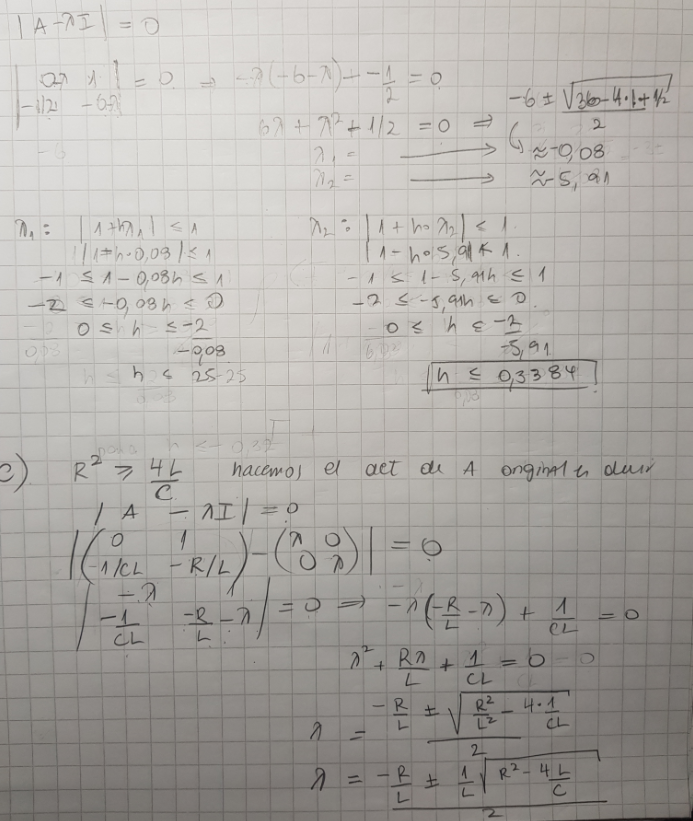 |A-λI| = 0
| 0-λ 1 | = 0 → -λ(-6-λ) + -1/2 = 0
| -1/2 -6-λ |
6λ + λ² + 1/2 = 0 ⇒ (-6 ± √(36-4·1·1/2))/2
λ₁ = → ≈ -0,08
λ₂ = → ≈ -5,91
λ₁: |1+hλ₁| ≤ 1
|1-h·0,08| ≤ 1
-1 ≤ 1-0,08h ≤ 1
-2 ≤ -0,08h ≤ 0
0 ≤ h ≤ -2/-0,08
h ≤ 25
λ₂: |1+h·λ₂| < 1
|1-h·5,91| < 1.
-1 ≤ 1-5,91h ≤ 1
-2 ≤ -5,91h ≤ 0.
0 ≤ h ≤ -2/-5,91
h ≤ 0,3384
c) R² ≥ 4L/C hacemos el det de A original es decir
|A - λI| = 0
|(0 1 / -1/CL -R/L) - (λ 0 / 0 λ)| = 0
| -λ 1 / -1/CL -R/L-λ | = 0 ⇒ -λ(-R/L-λ) + 1/CL = 0
λ² + Rλ/L + 1/CL = 0
λ = (-R/L ± √(R²/L² - 4·1/CL))/2
λ = (-R/L ± 1/L √(R²-4L/C))/2